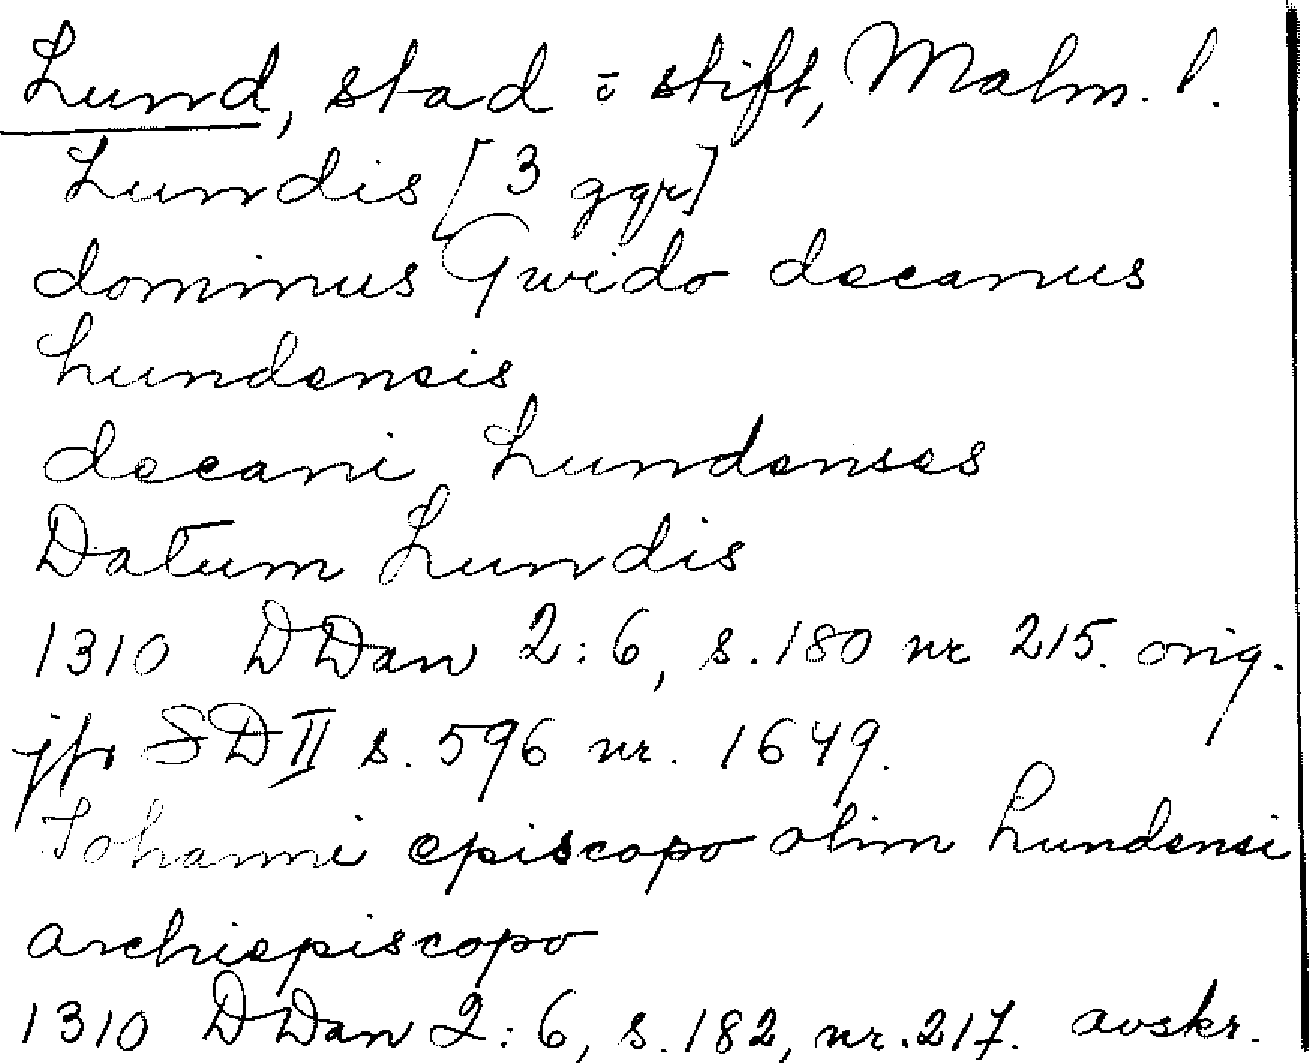 Lund, stad o stift, Malm. l.
Lundis [3 ggr]
dominus Gwido decanus
Lundensis
decani Lundenses
Datum Lundis
1310 DDan 2:6, s.180 nr 215. orig.
jfr SD II s. 596 nr. 1649.
Iohanni episcopo olim Lundensi
archiepiscopo
1310 DDan 2:6, s.182, nr.217. avskr.